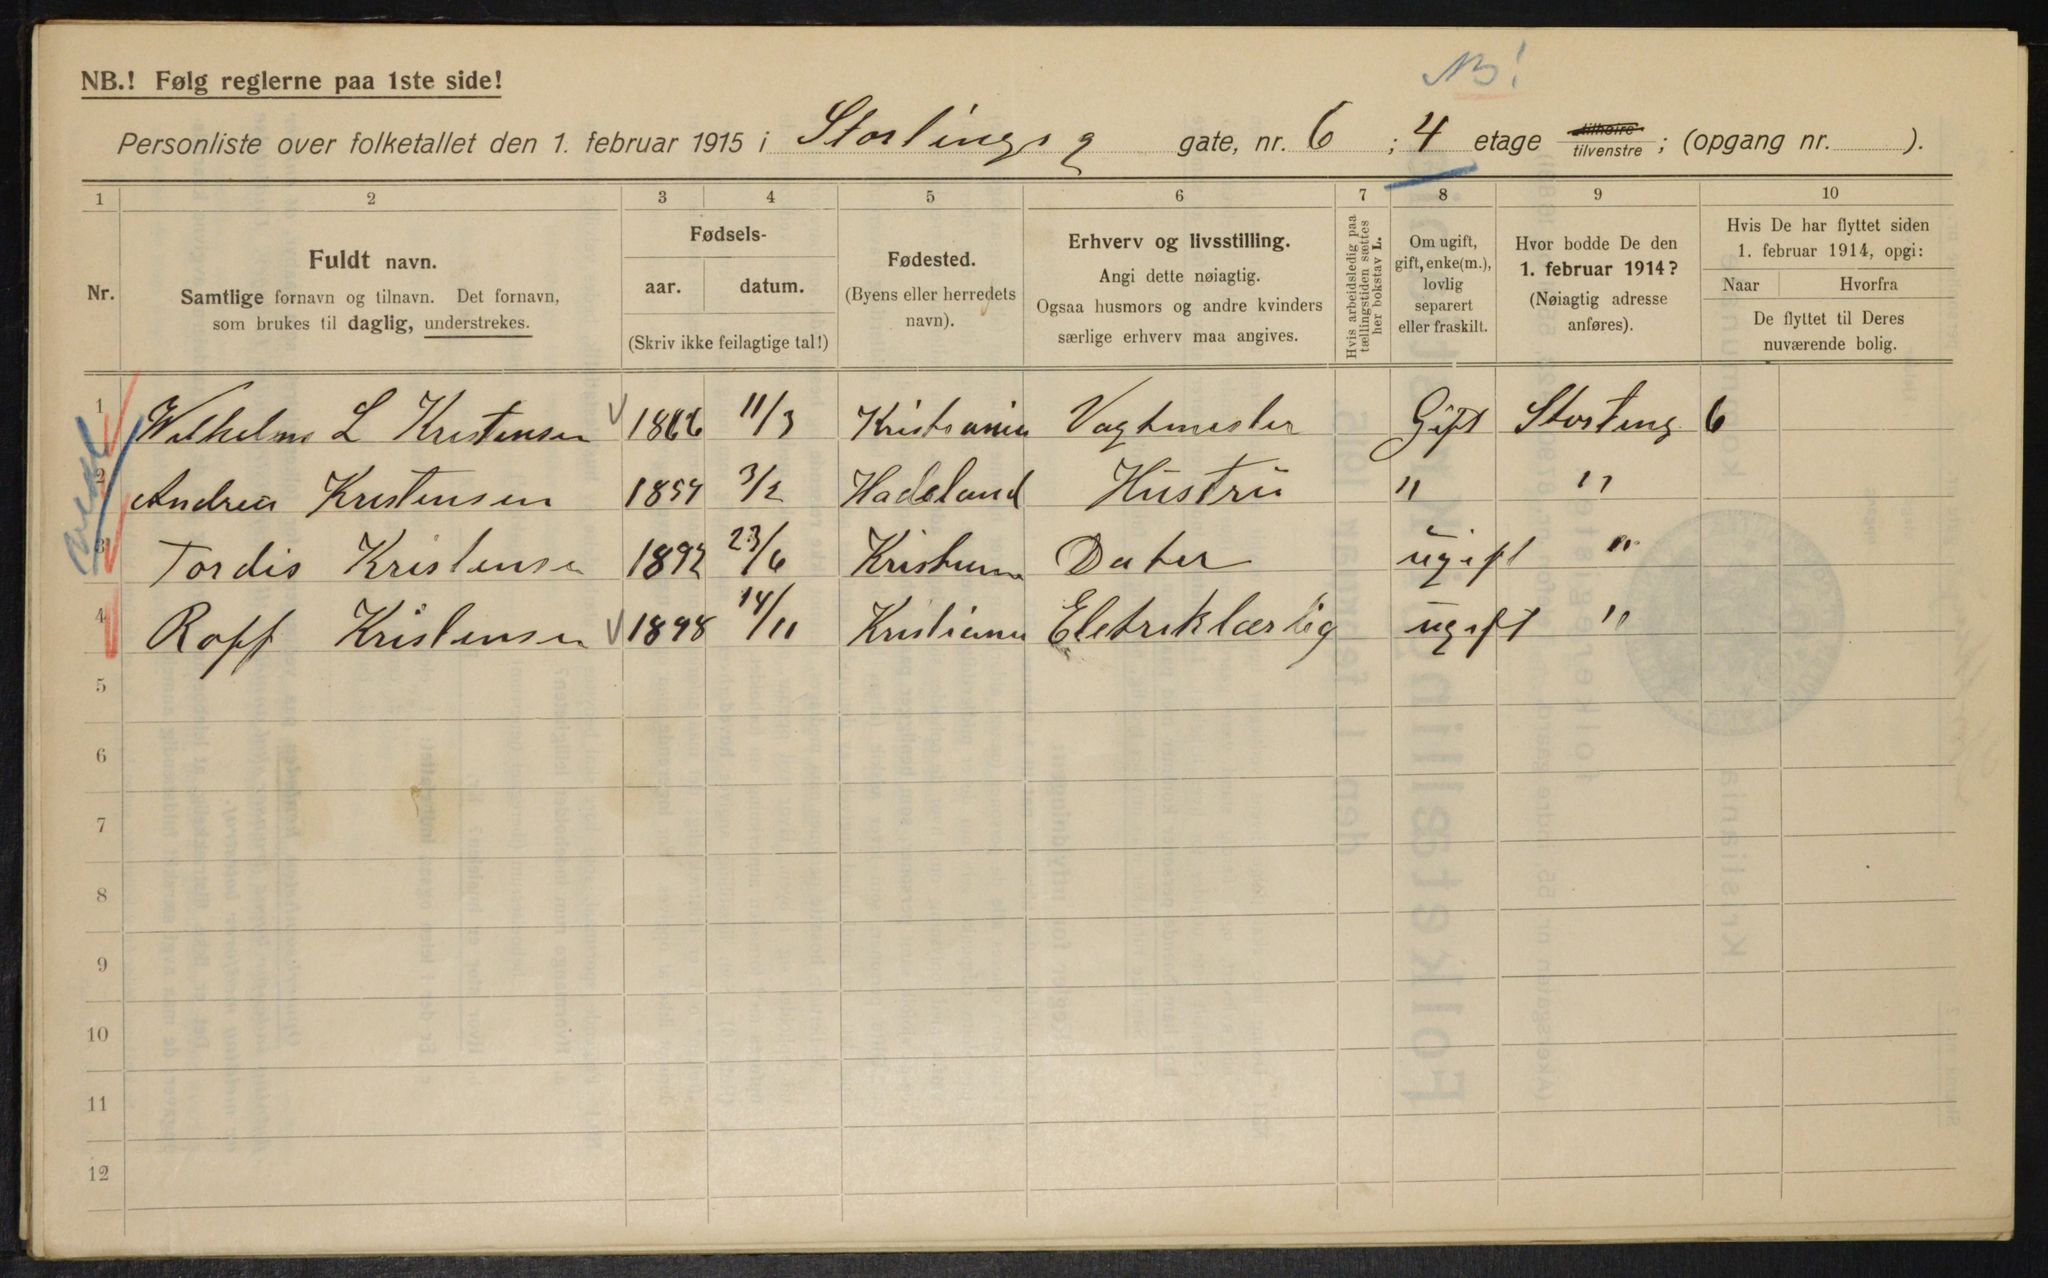 NB!
NB.! Følg reglerne paa 1ste side!
Personliste over folketallet den 1. februar 1915 i Stortingsg gate, nr. 6 ; 4 etage tilhøire tilvenstre ; (opgang nr. ).
1 2 3 4 5 6 7 8 9 10
Nr.
Fuldt navn.
Samtlige fornavn og tilnavn. Det fornavn,
som brukes til daglig, understrekes.
Fødsels-
aar. datum.
(Skriv ikke feilagtige tal!)
Fødested.
(Byens eller herredets
navn).
Erhverv og livsstilling.
Angi dette nøiagtig.
Ogsaa husmors og andre kvinders
særlige erhverv maa angives.
Hvis arbeidsledig paa
tællingstiden sættes
her bokstav L.
Om ugift,
gift, enke(m.),
lovlig
separert
eller fraskilt.
Hvor bodde De den
1. februar 1914?
(Nøiagtig adresse
anføres).
Hvis De har flyttet siden
1. februar 1914, opgi:
Naar Hvorfra
De flyttet til Deres
nuværende bolig.
1 Wilhelm L Kristensen 1866 11/3 Kristiania Vagtmester Gift Storting 6
2 Andrea Kristensen 1854 3/2 Hadeland Hustru " "
3 Tordis Kristensen 1892 23/6 Kristiania Dater ugift "
4 Roff Kristensen 1898 14/11 Kristiania Eletriklærlig ugift "
5
6
7
8
9
10
11
12